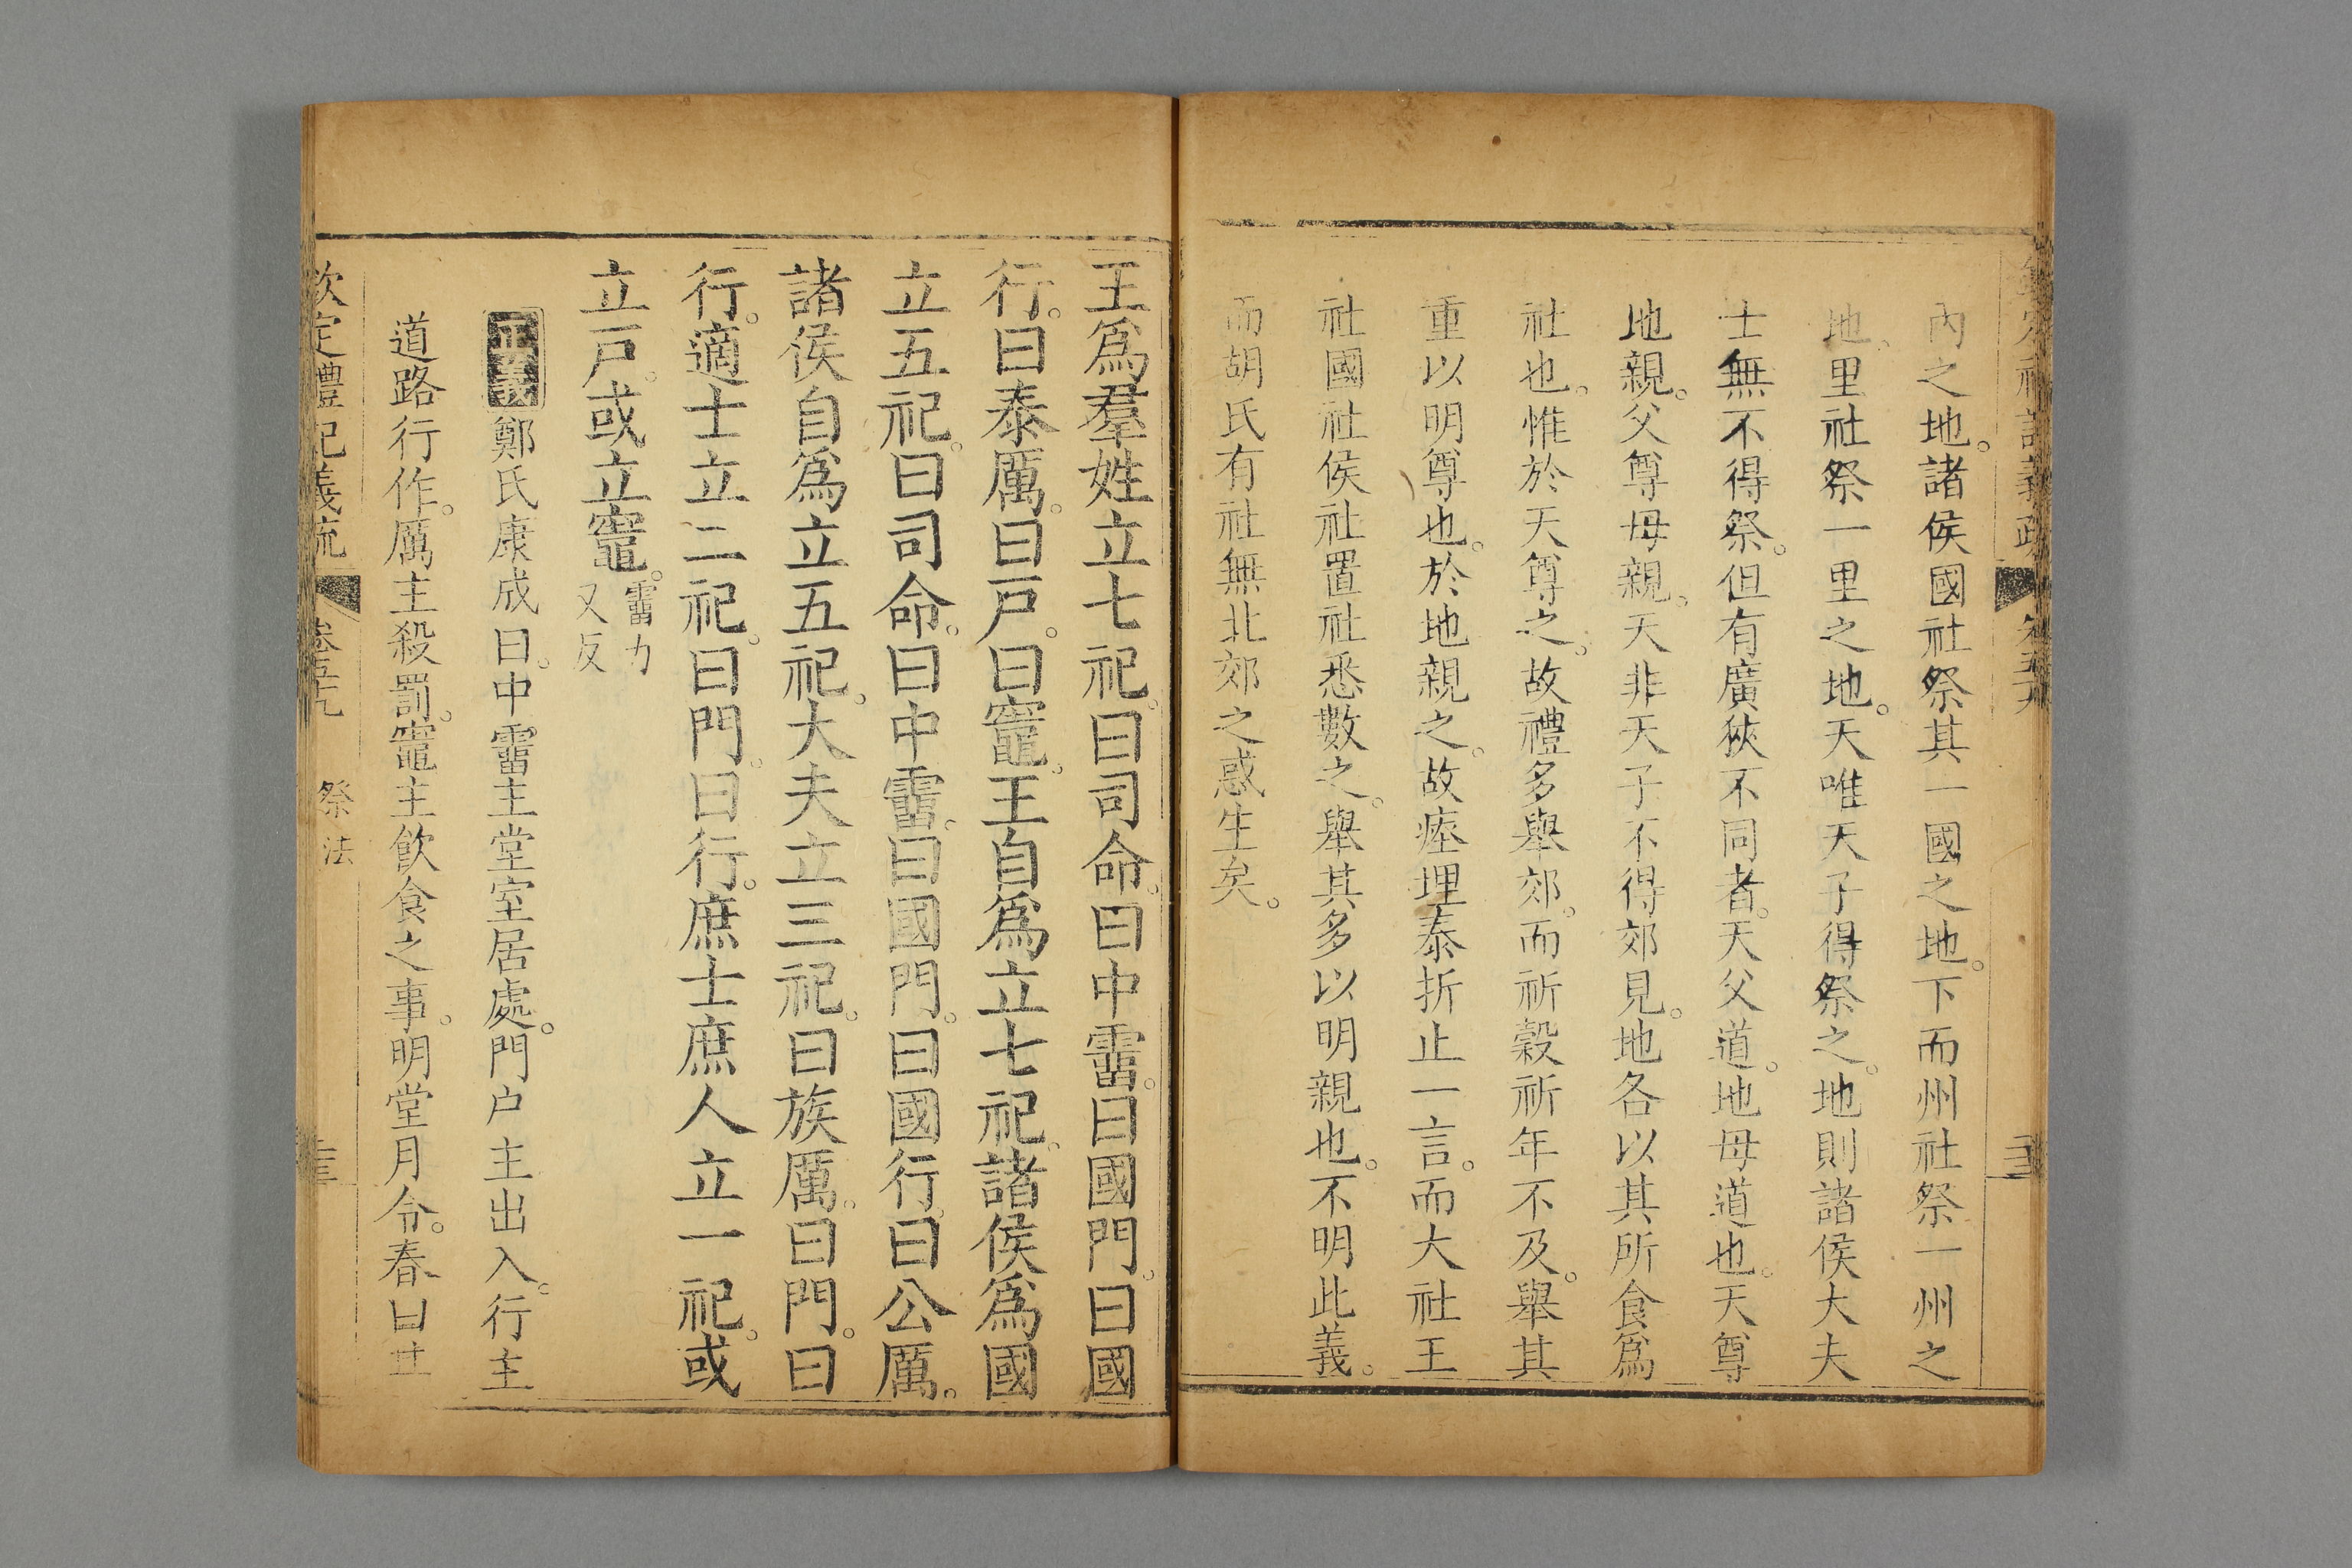 內之地。諸侯國社祭其一國之地。下而州社祭一州之
地。里社祭一里之地。天唯天子得祭之。地則諸侯大夫
士無不得祭。但有廣狹不同者。天父道。地母道也。天尊
地親。父尊母親。天非天子不得郊見。地各以其所食爲
社也。惟於天尊之。故禮多舉郊。而祈穀祈年不及。舉其
重以明尊也。於地親之。故瘞埋泰折止一言。而大社王
社國社侯社置社悉數之。舉其多以明親也。不明此義。
而胡氏有社無北郊之惑生矣。
王爲羣姓立七祀。曰司命。曰中霤。曰國門。曰國
行。曰泰厲。曰戶。曰竈。王自爲立七祀。諸侯爲國
立五祀。曰司命。曰中霤。曰國門。曰國行。曰公厲。
諸侯自爲立五祀。大夫立三祀。曰族厲。曰門。曰
行。適士立二祀。曰門。曰行。庶士庶人立一祀。或
立戶。或立竈。霤力又反
正義鄭氏康成曰。中霤主堂室居處。門户主出入。行主
道路行作。厲主殺罰。竈主飲食之事。明堂月令。春曰其
欽定禮記義疏 卷五十九 祭法